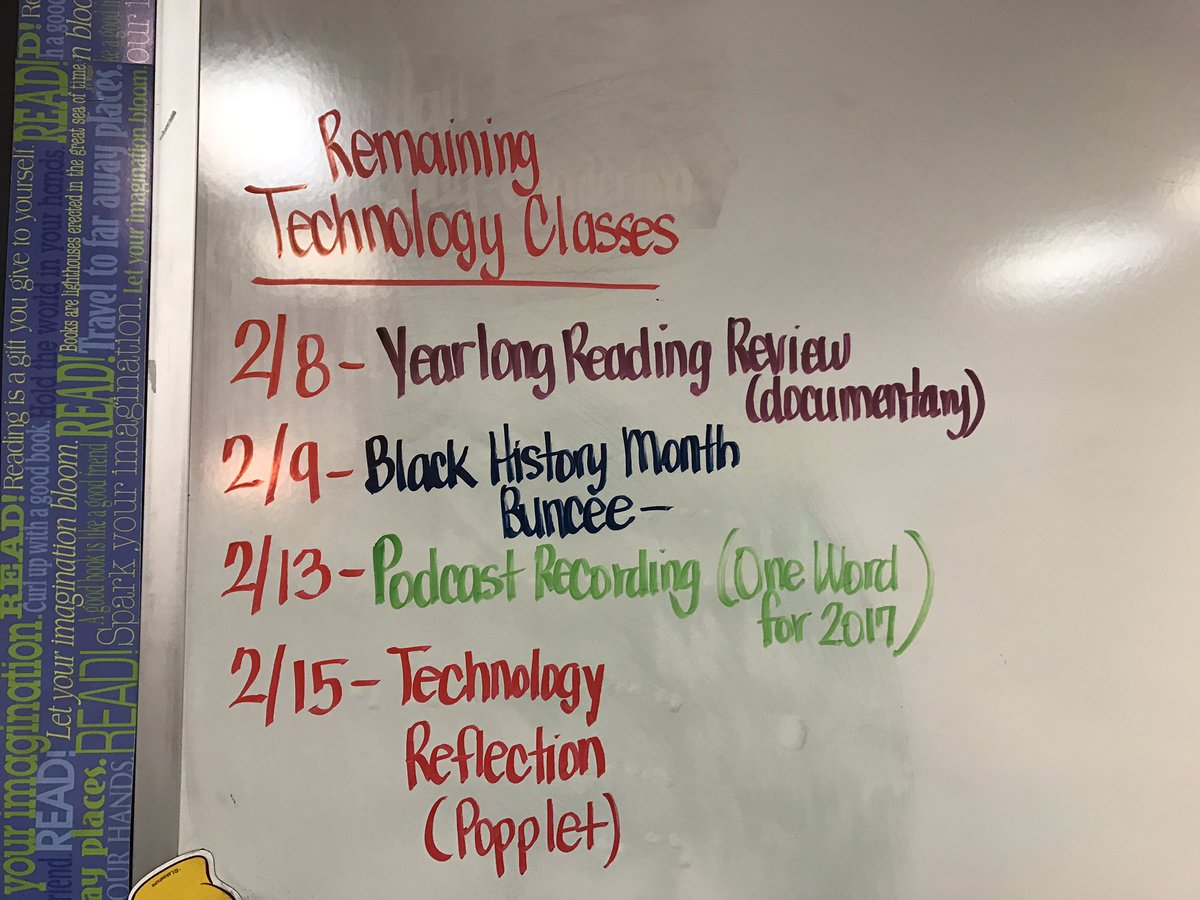 Remaining
Technology Classes
2/8- Yearlong Reading Review
(documentary)
2/9- Black History Month
Buncee-
2/13- Podcast Recording (One Word
for 2017)
2/15- Technology
Reflection
(Popplet)
your imagination. READ! Reading is a gift you give to yourself. READ!
READ! Curl up with a good book. Hold the world in your hands
Let your imagination bloom. READ! Books are lighthouses erected in the great sea of time.
A good book is like a good friend
ay places. READ! Spark your imagination. Travel to far away places.
OUR HANDS.
Let your imagination bloom